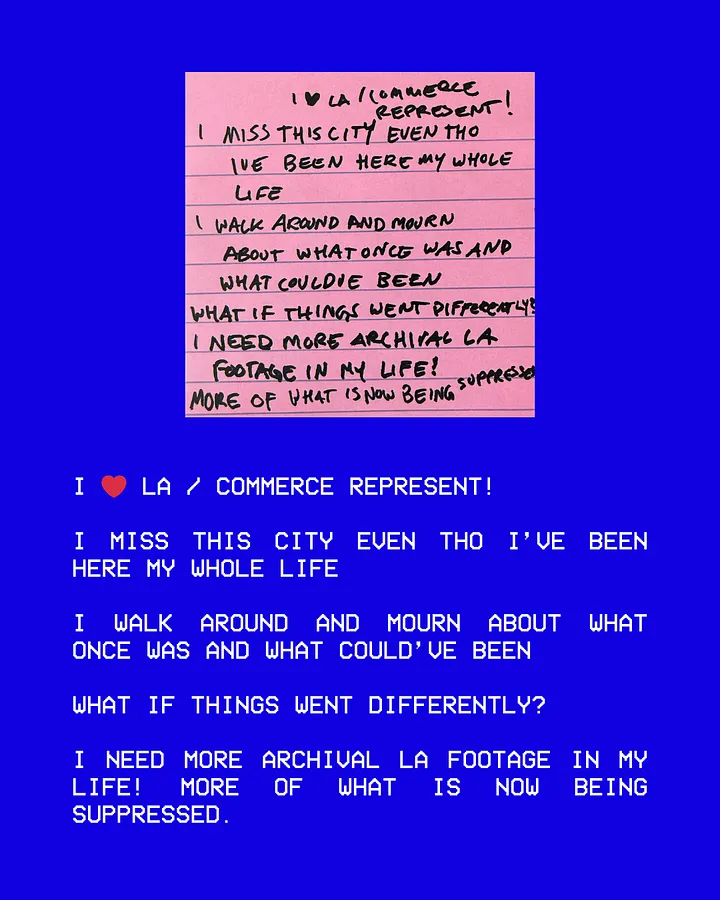 I ♥ LA / COMMERCE
REPRESENT!
I MISS THIS CITY EVEN THO
IVE BEEN HERE MY WHOLE
LIFE
I WALK AROUND AND MOURN
ABOUT WHAT ONCE WAS AND
WHAT COULDVE BEEN
WHAT IF THINGS WENT DIFFERENTLY?
I NEED MORE ARCHIVAL LA
FOOTAGE IN MY LIFE!
MORE OF WHAT IS NOW BEING SUPPRESSED
I ❤️ LA / COMMERCE REPRESENT!
I MISS THIS CITY EVEN THO I'VE BEEN
HERE MY WHOLE LIFE
I WALK AROUND AND MOURN ABOUT WHAT
ONCE WAS AND WHAT COULD'VE BEEN
WHAT IF THINGS WENT DIFFERENTLY?
I NEED MORE ARCHIVAL LA FOOTAGE IN MY
LIFE! MORE OF WHAT IS NOW BEING
SUPPRESSED.